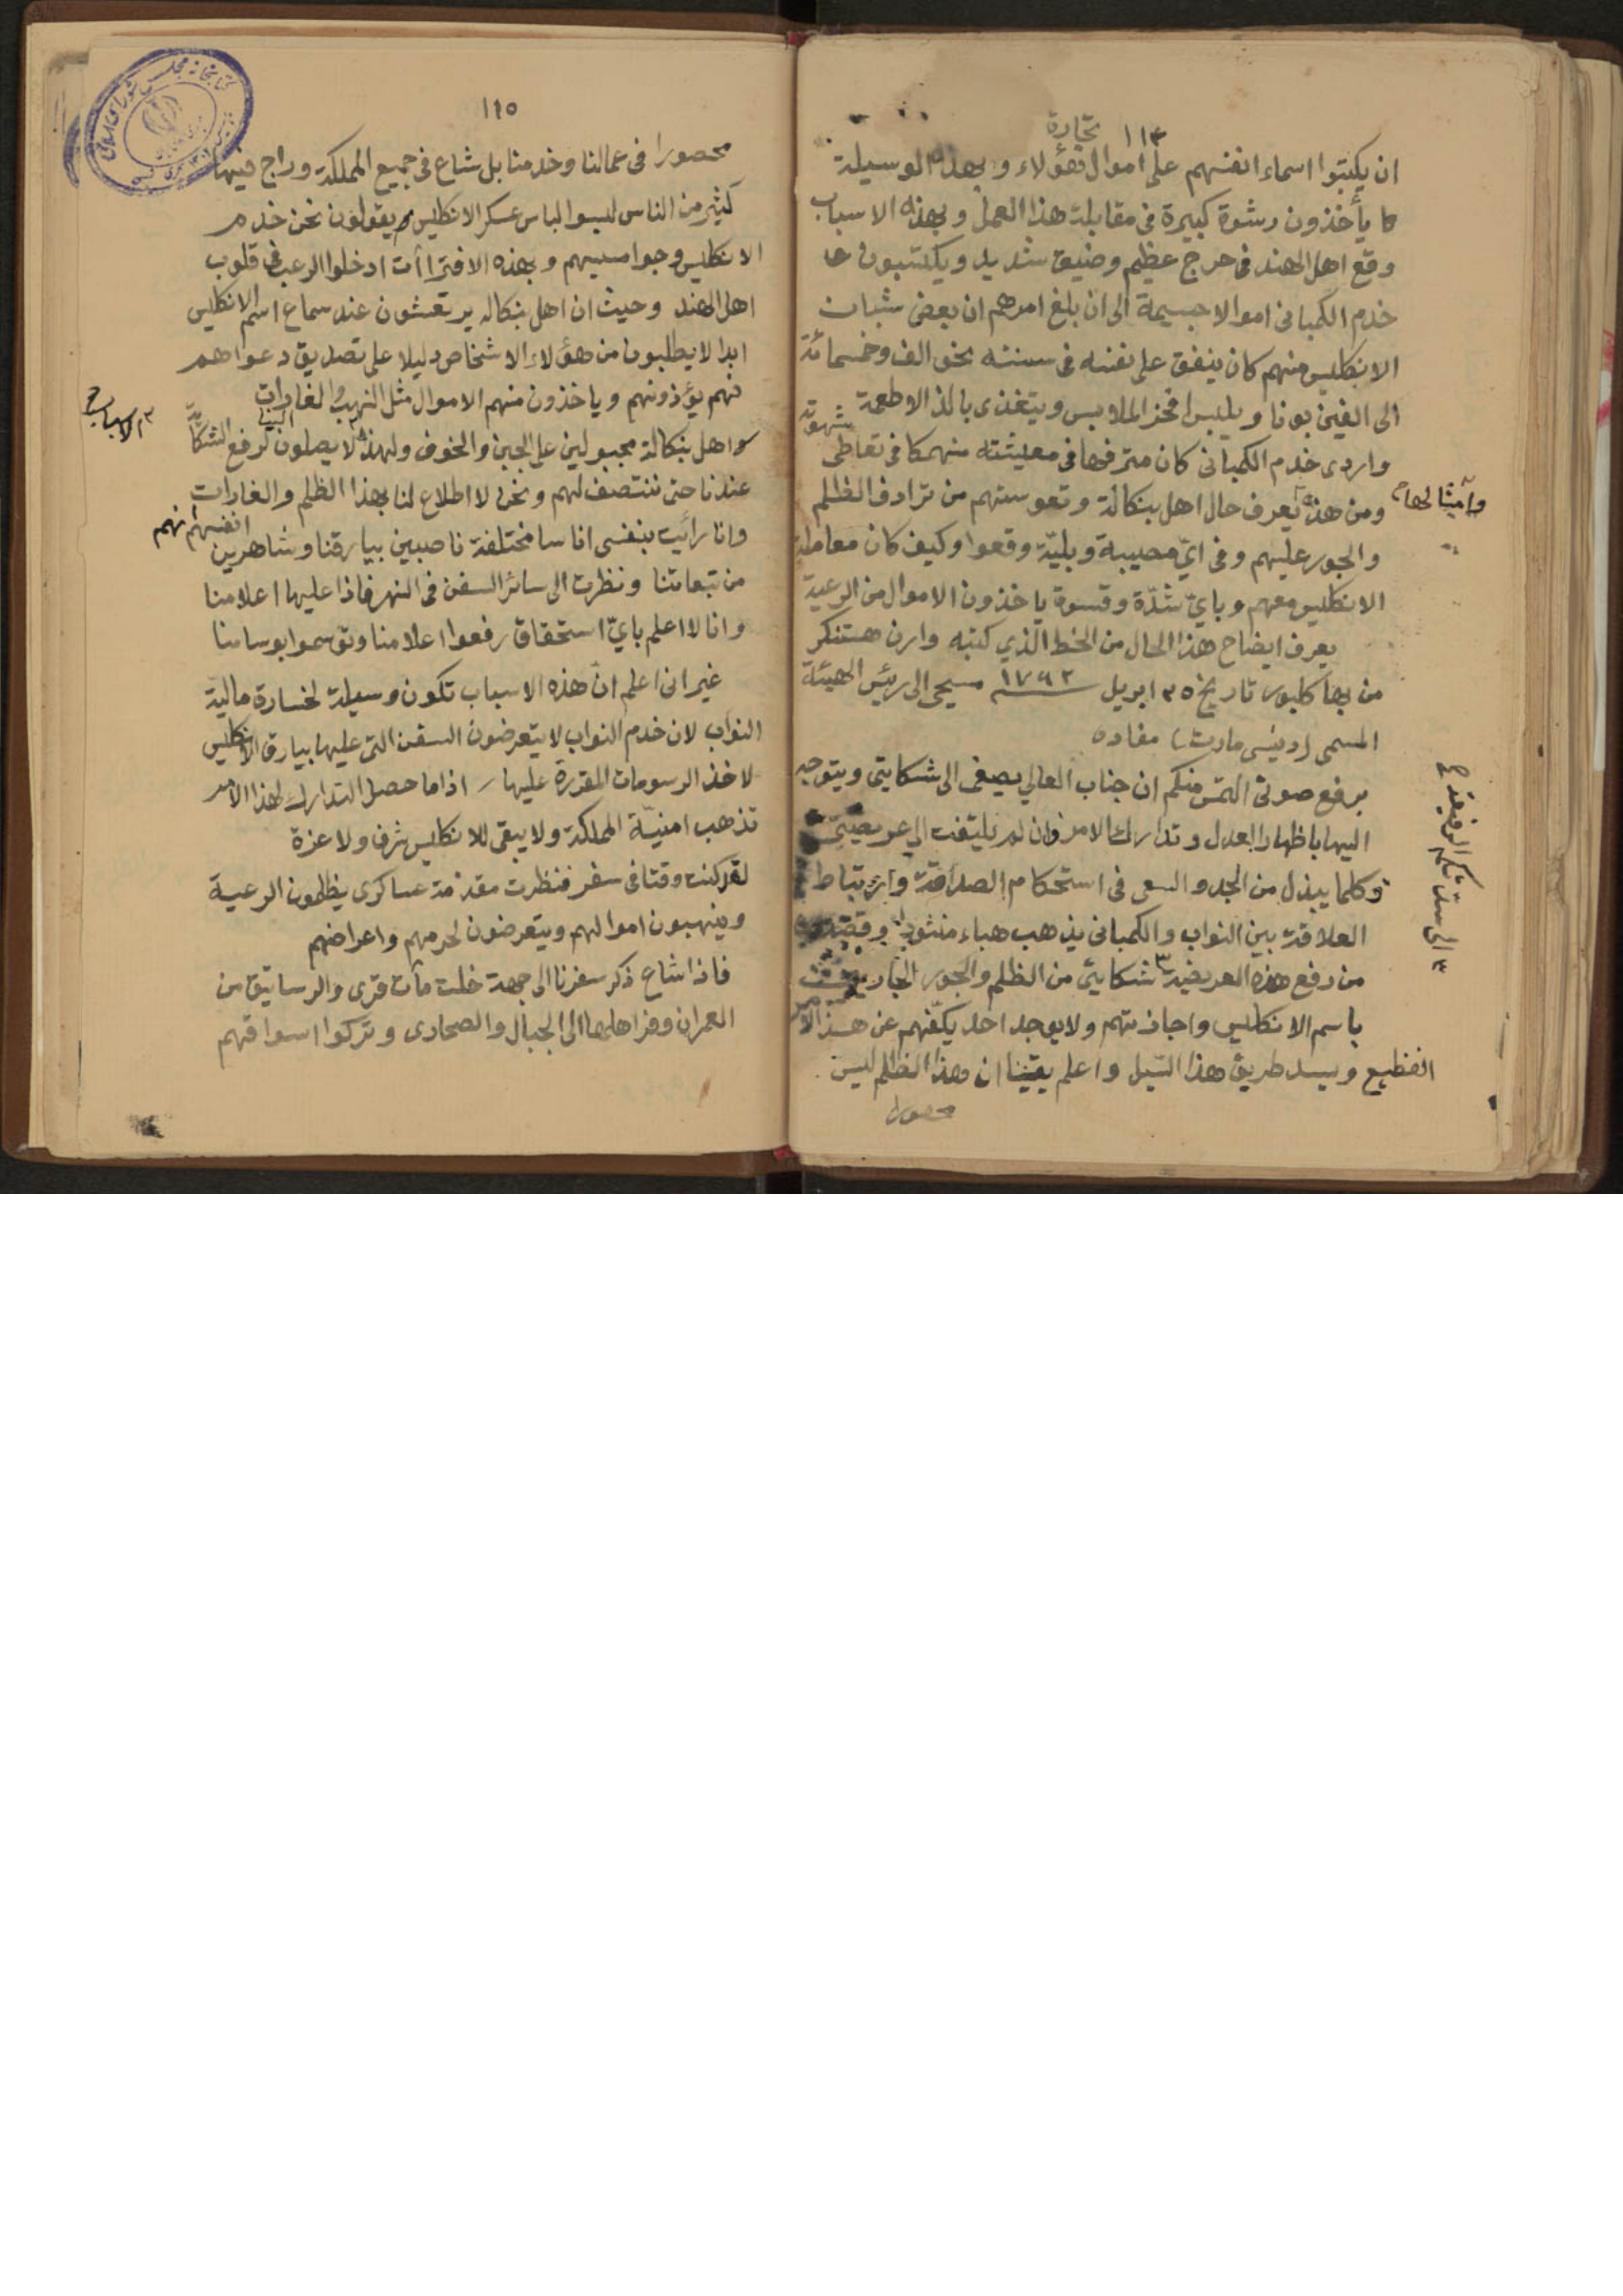 ١١٤
تجارة
ان يكتبوا اسماء انفسهم على اموال هؤلاء و بهذه الوسيلة
كا يأخذون رشوة كبيرة فى مقابلة هذا العمل و بهذه الاسباب
وقع اهل الهند فى حرج عظيم وضيق شديد ويكتسبون
خدم الكمبانى اموالا جسيمة الى ان بلغ امرهم ان بعض شبان
الانكليس منهم كان ينفق على نفسه فى سنته نحو الف وخمسمائة
الى الفين بونا ويلبس افخر الملابس ويتغذى بالذ الاطعمة
وادنى خدم الكمبانى كان مترفها فى معيشته منهمكا فى تعاطى شهوته
ومن هذه وامثالها يعرف حال اهل بنكالة وتعوستهم من ترادف الظلم
والجور عليهم وفى اىّ مصيبة وبليّة وقعوا وكيف كان معاملة
الانكليس معهم وباىّ شدّة وقسوة ياخذون الاموال من الرعية
يعرف ايضاح هذا الحال من الخط الذي كتبه وارن هستنكز
من بهاكلپور تاريخ ٢٥ ابريل ١٧٦٢ مسيحى الى رئيس الهيئة
المسمى (دينسى مارت) مفاده
برفع صوتى التمس منكم ان جناب العالي يصغى الى شكايتى ويتوجه
اليها باظهار العدل وتدارك الامر وان لم يلتفت الى عريضتى
وكلما يبذل من الجد والسعى فى استحكام الصداقة وارتباط
العلاقة بين النواب والكمبانى يذهب هباء منثورا وقصدى
من رفع هذه العريضة الى سدتكم الرفيعة شكايتى من الظلم والجور الجارى
باسم الانكليس واجازتهم ولا يوجد احد يكفّهم عن هذا الامر
الفظيع ويسد طريق هذا السّيل واعلم يقينا ان هذا الظلم ليس
محصورا
١١٥
محصورا فى عمالنا وخدمنا بل شاع فى جميع المملكة وراج فيها
كثير من الناس لبسوا لباس عسكر الانكليس ويقولون نحن خدم
الانكليس وجواسيسهم وبهذه الافتراأت ادخلوا الرعب فى قلوب
اهل الهند وحيث ان اهل بنكاله يرتعشون عند سماع اسم الانكليس
ابدا لا يطلبون من هؤلاء الاشخاص دليلا على تصديق دعواهم
فهم يؤذونهم وياخذون منهم الاموال مثل النهب والغارات
واهل بنكالة مجبولين على الجبن والخوف ولهذه الاسباب لا يصلون الينا لرفع الشكاية
عندنا حتى ننتصف لهم ونحن لا اطلاع لنا بهذا الظلم والغارات
وانا رأيت بنفسى اناسا مختلفة ناصبين بيارقنا وشاهرين انفسهم انهم
من تبعاتنا ونظرت الى سائر السفن فى النهر فاذا عليها اعلامنا
وانا لا اعلم باىّ استحقاق رفعوا اعلامنا وتوسموا بوسامنا
غير انى اعلم ان هذه الاسباب تكون وسيلة لخسارة مالية
النواب لان خدم النواب لا يتعرضون السفن التى عليها بيارق الانكليس
لاخذ الرسومات المقررة عليها / اذا ما حصل التدارك لهذا الامر
تذهب امنيّة المملكة ولا يبقى للانكليس شرف ولا عزة
لقد كنت وقتا فى سفر فنظرت مقدمة عساكرى يظلمون الرعية
وينهبون اموالهم ويتعرضون لحرمهم واعراضهم
فاذا شاع ذكر سفرنا الى جهة خلت مآت قرى والرساتيق من
العمران وفرّ اهلها الى الجبال والصحارى وتركوا اسواقهم